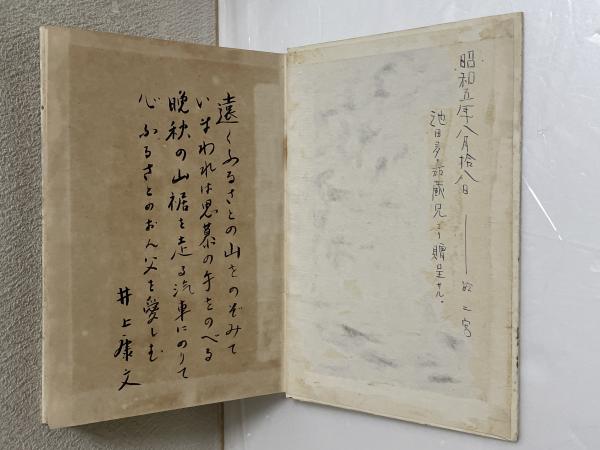 昭和五年八月拾八日 ― 於二宮
池田 蔵兄ヨリ贈呈サル。
遠くふるさとの山をのぞみて
いまわれは思慕の手をのべる
晩秋の山裾を走る汽車にのりて
心ふるさとのおん父を愛しむ
井上康文